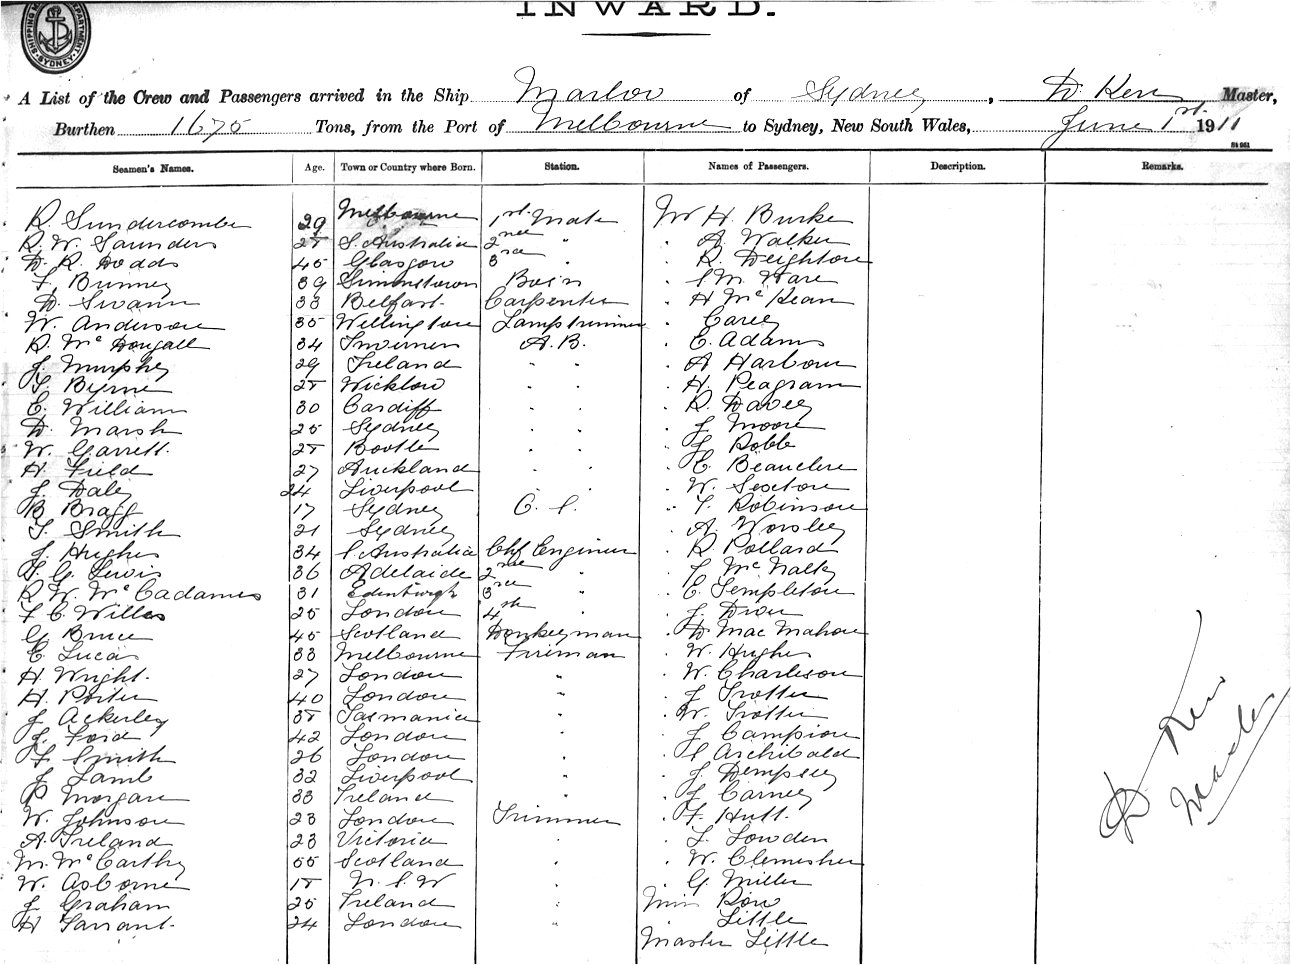 INWARD.
SHIPPING DEPARTMENT SYDNEY
A List of the Crew and Passengers arrived in the Ship Marloo of Sydney, D Kerr Master,
Burthen 1675 Tons, from the Port of Melbourne to Sydney, New South Wales, June 1st 1911
Seamen's Names. Age. Town or Country where Born. Station. Names of Passengers. Description. Remarks.
R. Sundercombe 29 Melbourne 1st Mate Mr H Burke
R. W. Saunders 28 S. Australia 2nd " " A. Walker
D. R. Dodds 45 Glasgow 3rd " " R. Deighton
F. Bunney 39 Simmstown Bosn " S M. Hare
D. Swann 33 Belfast Carpenter " H McKean
W. Anderson 35 Wellington Lamptrimmer " Carey
R. McDougall 34 Inverness A.B. " E. Adams
J. Murphy 29 Ireland " " " A Harbour
T. Byrne 28 Wicklow " " " H. Peagram
E. William 30 Cardiff " " " R. Davey
D. Marsh 25 Sydney " " " J Moore
W. Garrett 28 Bootle " " " J Robb
H. Field 27 Auckland " " " E. Beauclere
J. Daley 24 Liverpool " " " W. Sexton
B. Bragg 17 Sydney O. S. " T. Robinson
T. Smith 21 Sydney " A. Worsley
J. Hughes 34 S Australia Chf Engineer " R Pollard
T. G. Lewis 36 Adelaide 2nd " " J McNalty
R. W. McCadames 31 Edinburgh 3rd " " C. Templeton
F C. Willes 25 London 4th " J. Dion
G Bruce 45 Scotland Donkeyman " D. MacMahon
C. Lucas 33 Melbourne Fireman " W. Hughes
H. Wright 27 London " " W. Charleson
H. Porter 40 London " " J Trotter
J. Ackerley 38 Tasmania " " W. Trotter
J. Ford 42 London " " J Campion
F Smith 26 London " " S Archibald
J. Lamb 32 Liverpool " " J. Dempsey
P Morgan 33 Ireland " " J Carney
W. Johnson 23 London Trimmer " F. Hutt.
A. Ireland 23 Victoria " " L. Lowden
M. McCarthy 55 Scotland " " W. Clemesher
W. Asborne 18 N. S. W " " G Miller
J. Graham 25 Ireland " Miss Row
H Tarrant 24 London " " Little
Master Little
D. Kerr
Master